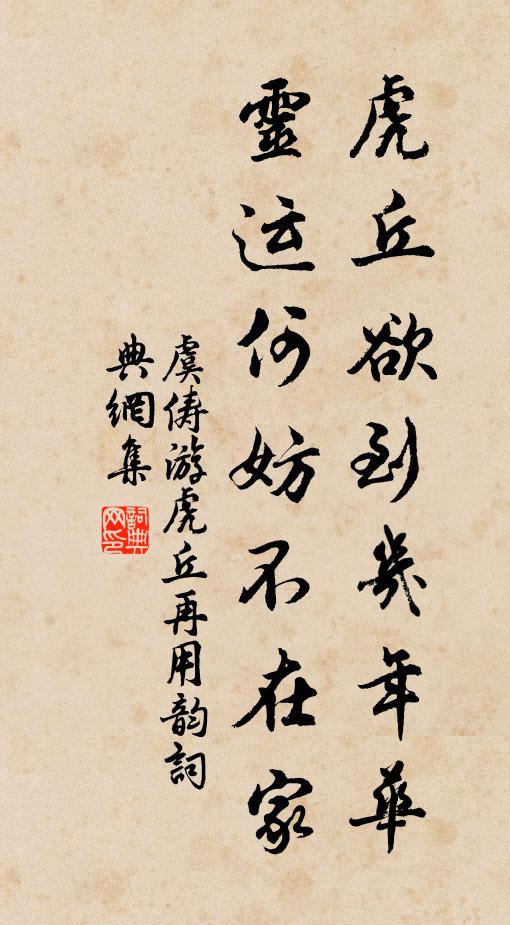 虎丘欲到幾年華
靈运何妨不在家
虞俦游虎丘再用韵詞
典網集
詞典网印